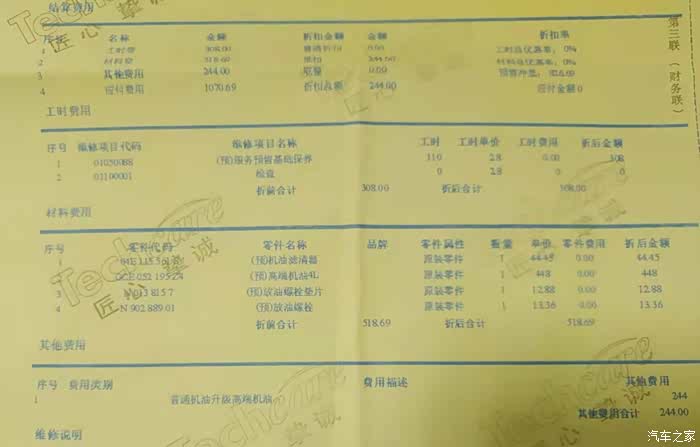 结算费用
序号 名称 金额 折扣金额 金额 折扣率
1 工时费 308.00 普通折扣 0.00 工时总优惠率: 0%
2 材料费 518.69 抵扣 244.00 材料总优惠率: 0%
3 其他费用 244.00 0.00
4 应付费用 1070.69 折扣总额 244.00 应付金额 0
第三联(财务联)
工时费用
序号 维修项目代码 维修项目名称 工时 工时单价 工时费用 折后金额
1 01050088 (预)服务预留基础保养 110 2.8 0.00 308
2 01100001 检查 0 2.8 0 0
折前合计 308.00 折后合计 308.00
材料费用
序号 零件代码 零件名称 品牌 零件属性 数量 单价 零件费用 折后金额
(预)机油滤清器 原装零件 1 44.45 0.00 44.45
(预)高端机油4L 原装零件 1 448 0.00 448
(预)放油螺栓垫片 原装零件 1 12.88 0.00 12.88
4 N 902.889.01 (预)放油螺栓 原装零件 1 13.36 0.00 13.36
折前合计 518.69 折后合计 518.69
其他费用
序号 费用类别 费用描述 其他费用
1 普通机油升级高端机油 244
其他费用合计 244.00
维修说明
Techcare
匠心挚诚
汽车之家